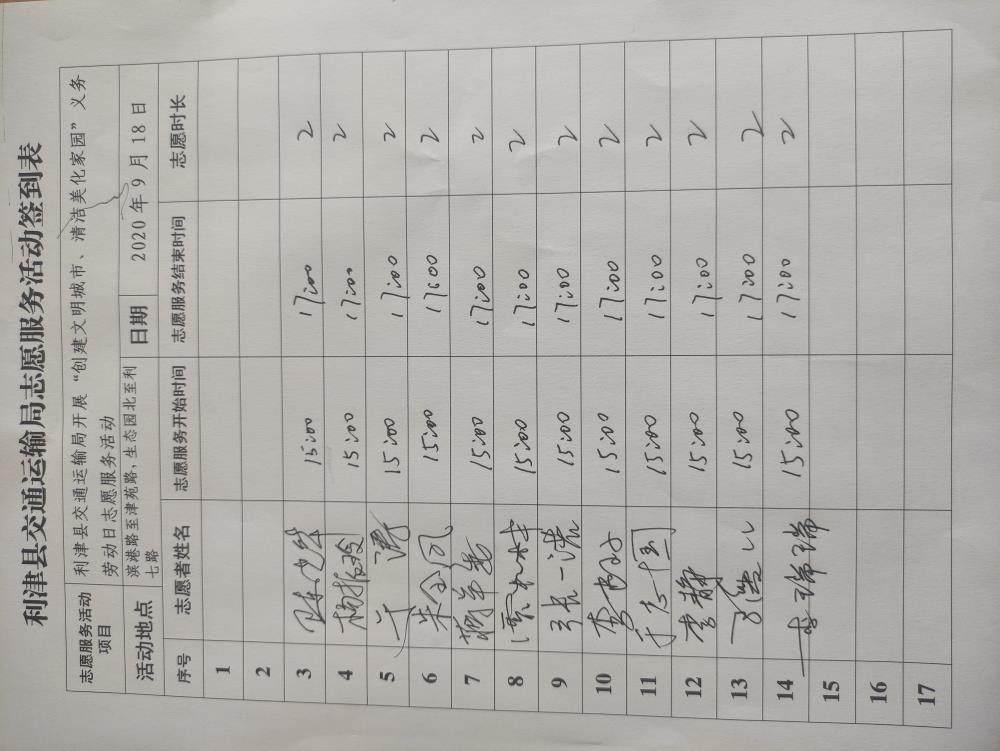 利津县交通运输局志愿服务活动签到表
志愿服务活动项目 利津县交通运输局开展“创建文明城市、清洁美化家园”义务劳动日志愿服务活动
活动地点 滨港路至津苑路,生态园北至利七路 日期 2020 年 9 月 18 日
序号 志愿者姓名 志愿服务开始时间 志愿服务结束时间 志愿时长
1
2
3 15:00 17:00 2
4 杨振波 15:00 17:00 2
5 15:00 17:00 2
6 朱金凤 15:00 17:00 2
7 15:00 17:00 2
8 15:00 17:00 2
9 张一浩 15:00 17:00 2
10 15:00 17:00 2
11 15:00 17:00 2
12 李静 15:00 17:00 2
13 15:00 17:00 2
14 李瑞瑞 15:00 17:00 2
15
16
17